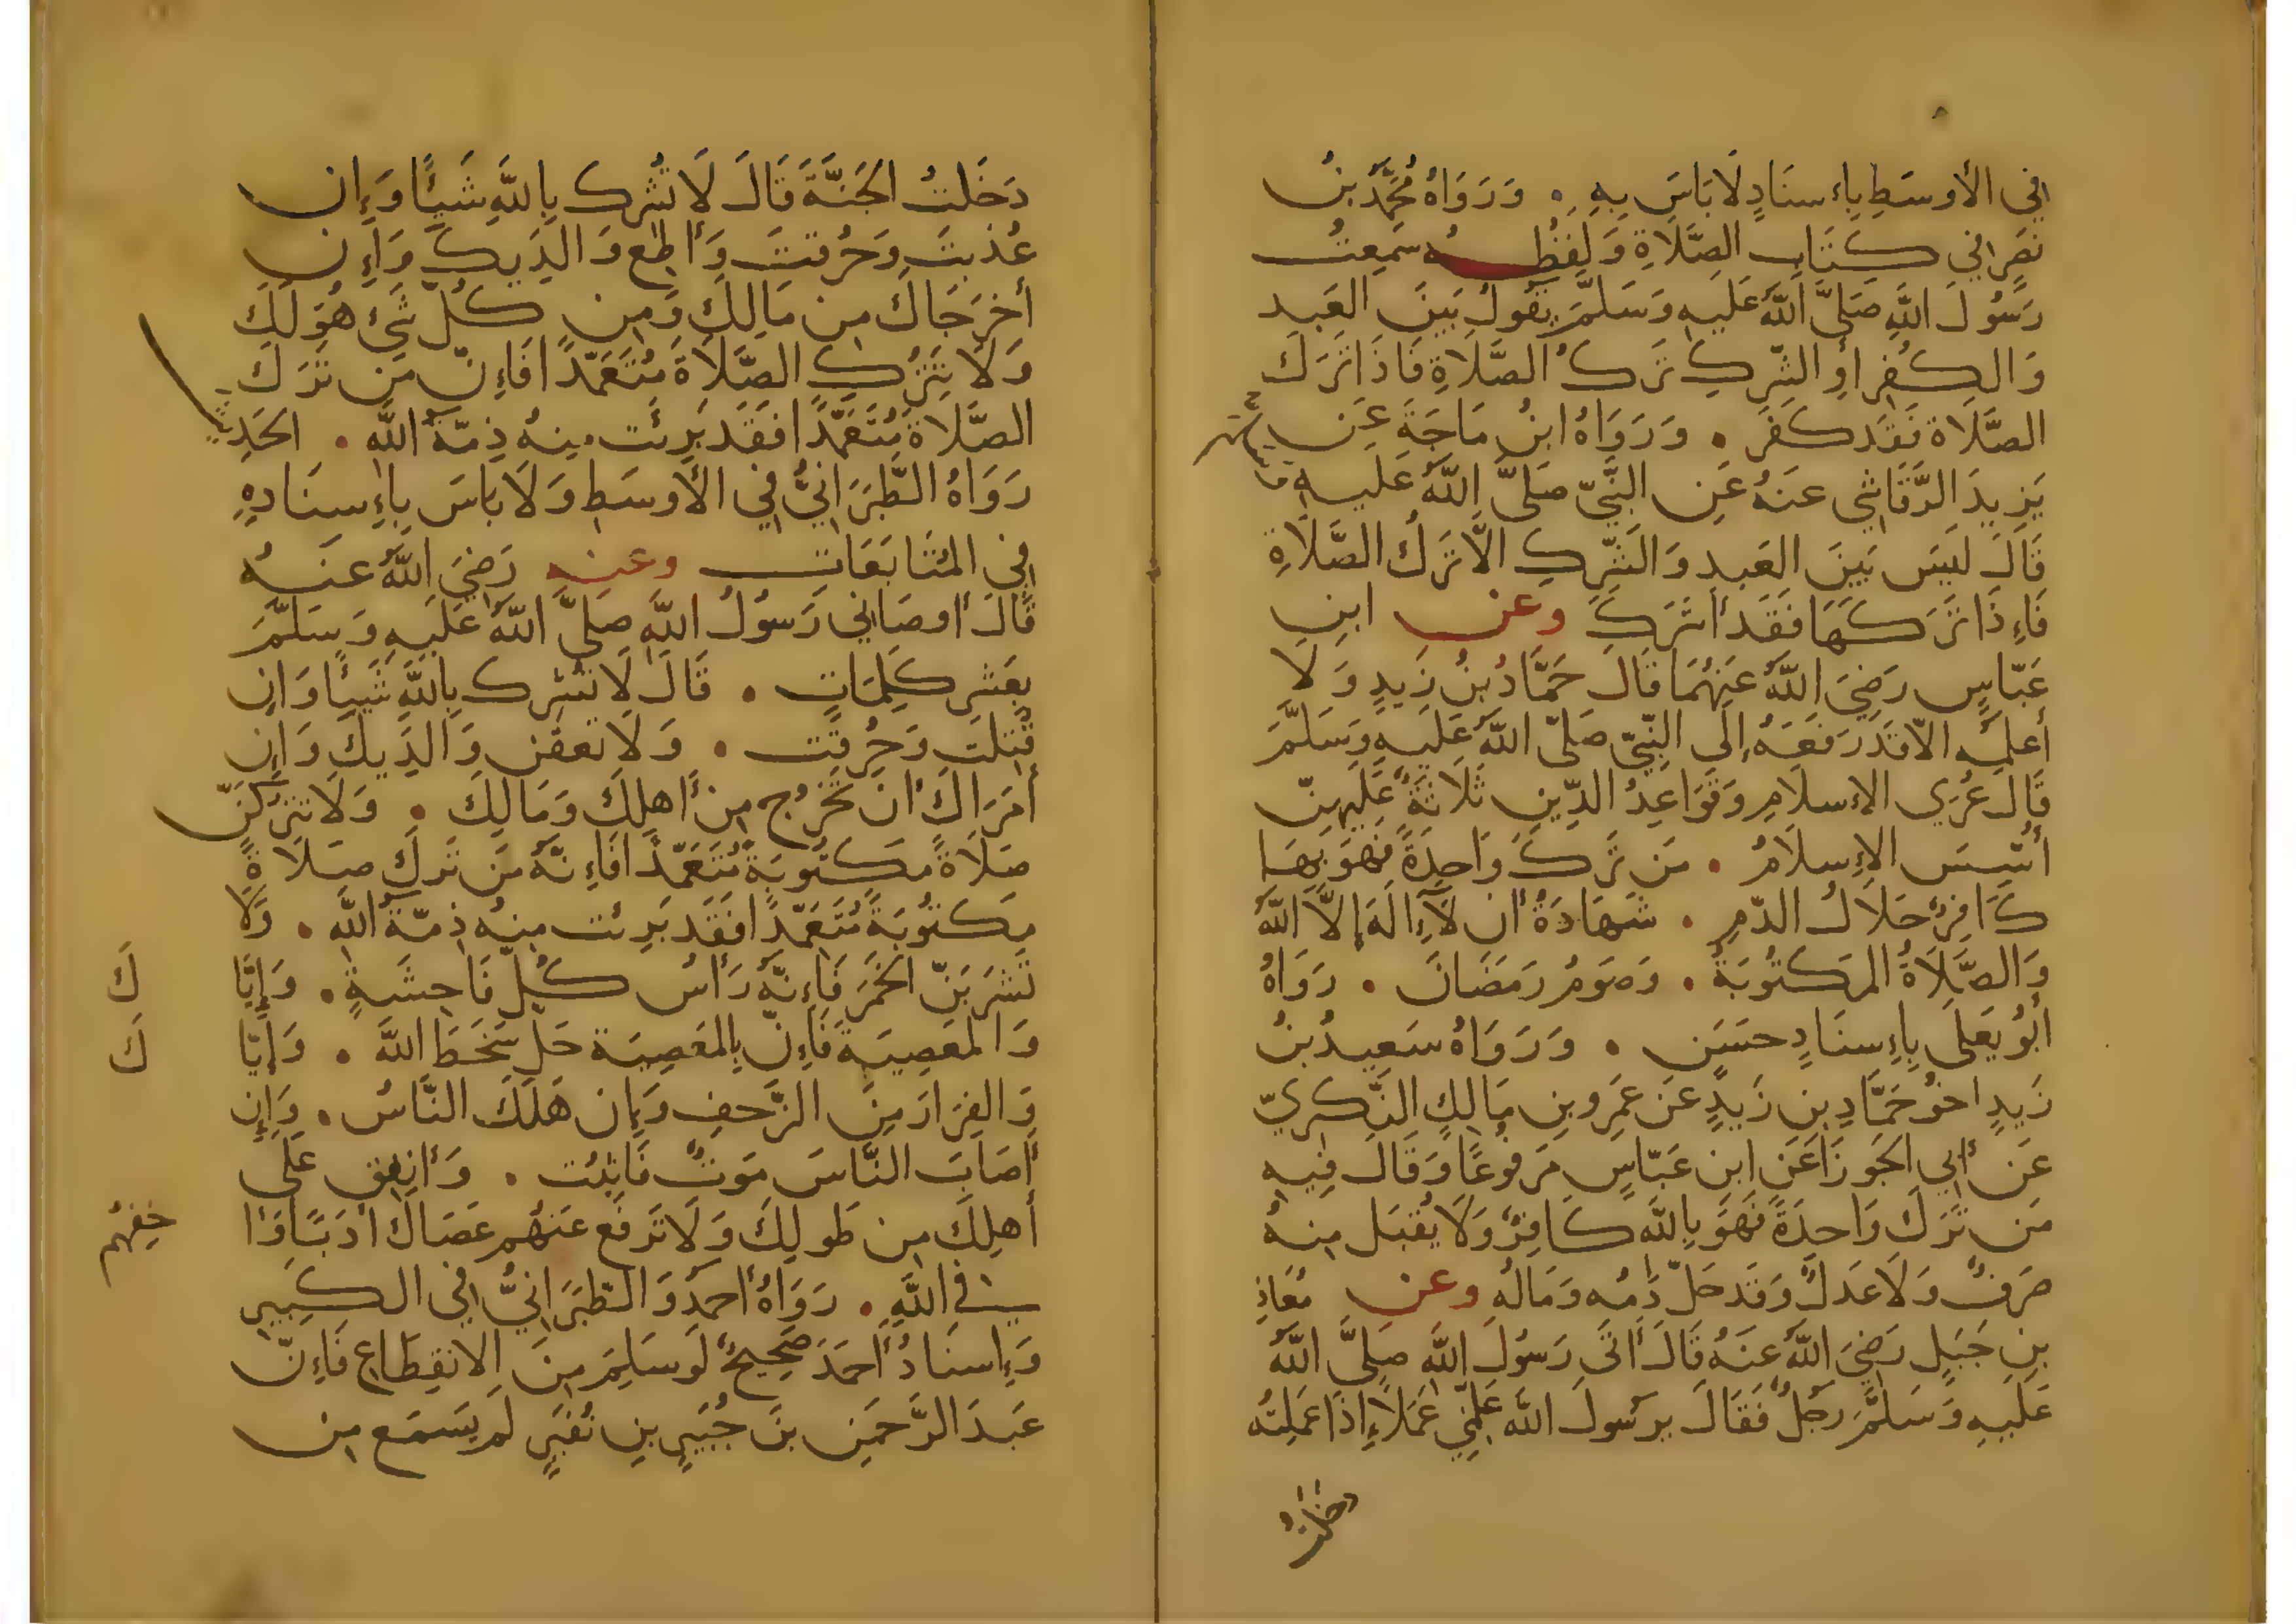 في الأوسَطِ بِاءِسنَادٍ لَا بَاسَ بِهِ . وَرَوَاهُ مُحَمَّدُ بنُ
نَصرٍ في كِتَابِ الصَّلَاةِ وَلَفظُه سَمِعتُ
رَسُولَ اللَّهِ صَلَّى اللَّهُ عَلَيهِ وَسَلَّمَ يَقُولُ بَينَ العَبدِ
وَالكُفرِ أوِ الشِّركِ تَركُ الصَّلَاةِ فَاذَا تَرَكَ
الصَّلَاةَ فَقَد كَفَرَ . وَرَوَاهُ ابنُ مَاجَةَ عَن
يَزِيدَ الرَّقَاشِي عَنهُ عَنِ النَّبِيّ صَلَّى اللَّهُ عَلَيهِ
قَالَ لَيسَ بَينَ العَبدِ وَالشِّركِ الَّا تَركُ الصَّلَاةِ
فَاءِذَا تَرَكَهَا فَقَد أَشرَكَ وعن ابنِ
عَبَّاسٍ رَضِيَ اللَّهُ عَنهُمَا قَالَ حَمَّادُ بنُ زَيدٍ وَلَا
أعلَمُه الّا قَد رَفَعَهُ إلَى النَّبِيّ صَلّى اللَّهُ عَلَيهِ وَسَلَّمَ
قَالَ عُرَى الإسلَامِ وَقَوَاعِدُ الدِّينِ ثَلَاثَةٌ عَلَيهِنّ
أُسِّسَ الإِسلَامُ . مَن تَرَكَ وَاحِدَةً فَهوَ بِهَا
كَافِرٌ حَلَالُ الدَّمِ . شَهَادَةُ أن لَآءِالَهَ إلَّا اللَّهُ
وَالصَّلَاةُ المَكتُوبَةُ . وَصَومُ رَمَضَانَ . رَوَاهُ
أبُو يَعلَى بِاءِسنَادٍ حَسَنٍ . وَرَوَاهُ سَعِيدُ بنُ
زَيدٍ اخُو حَمَّادِ بنِ زَيدٍ عَن عَمرِو بنِ مَالِكٍ النُّكرِيّ
عَن أبي الجَوزَا عَنَ ابن عَبّاسٍ مَرفُوعًا وَقَالَ فِيهِ
مَن تَرَكَ وَاحِدَةً فَهوَ بِاللَّه كَافِرٌ وَلَا يُقبَل مِنهُ
صَرفٌ وَلَا عَدلٌ وَقَد حَلّ دَمُه وَمَالُه وعن مُعَاذِ
بنِ جَبَلٍ رَضِيَ اللَّهُ عَنهُ قَالَ أتَى رَسُولَ اللَّهِ صَلَّى اللَّهُ
عَلَيهِ وَسَلَّمَ رَجُلٌ فَقَالَ يرَسُولَ اللَّه عَلِّمنِي عَمَلًا إِذَا عَمِلتُه
دخلتُ
دَخَلتُ الجَنَّةَ قَالَ لَا تُشرِك بِاللَّهِ شَيئًا وَإِن
عُذِّبتَ وَحُرِّقتَ وَأطِع وَالِدَيكَ وَإِن
أخرَجَاكَ مِن مَالِكَ وَمِن كُلّ شَيءٍ هُوَ لَكَ
وَلَا تَترُكِ الصَّلَاةَ مُتَعَمِّدًا فَاءِنّ مَن تَرَكَ
الصَّلَاةَ مُتَعَمِّدًا فَقَد بَرِئَت مِنهُ ذِمّةُ اللَّهِ . الحَدِيث
رَوَاهُ الطَّبَرَانِيُّ في الأَوسَطِ وَلَا بَاسَ بِاءِسنَادِهِ
فِي المُتَابَعَاتِ وعنه رَضِيَ اللَّهُ عَنهُ
قَالَ أوصَانِي رَسُولُ اللَّهِ صَلَّى اللَّهُ عَلَيهِ وَسَلَّمَ
بِعَشرِ كَلِمَاتٍ . قَالَ لَا تُشرِك بِاللَّهِ شَيئًا وَان
قُتِلتَ وَحُرِّقتَ . وَلَا تَعقَّن وَالِدَيكَ وَإن
أمَرَاكَ أن تَخرُج مِن أهلِكَ وَمَالِكَ . وَلَا تَترُكَنّ
صَلَاةً مَكتُوبَةً مُتَعَمِّدًا فَاءِنَّهُ مَن تَرَكَ صَلَاةً
مَكتُوبَةً مُتَعَمِّدًا فَقَد بَرِئَت مِنهُ ذِمّةُ اللَّهِ . وَلَا
تَشرَبَنّ الخَمرَ فَاءِنّهُ رَأسُ كُلّ فَاحِشَةٍ . وَإيَّا
كَ
وَالمَعصِيَةَ فَاءِنّ بِالمَعصِيَة حَلّ سَخَطُ اللَّهِ . وَإيَّا
كَ
وَالفِرَارَ مِنَ الزَّحفِ وَإن هَلَكَ النَّاسُ . وَإن
أصَابَ النَّاسَ مَوتٌ فَاثبُت . وَأنفِق عَلَى
أهلِكَ مِن طَولِكَ وَلَا تَرفَع عَنهُم عَصَاكَ أدَبًا وَا
خِفهُم
في اللَّهِ . رَوَاهُ أحمَدُ وَالطَّبَرَانِيُّ في الكَبِيرِ
وَإسنَادُ أحمَدَ صَحِيحٌ لَو سَلِمَ مِنَ الانقِطَاعِ فَاءِنّ
عَبدَ الرَّحمَنِ بنَ جُبَيرِ بنِ نُفَيرٍ لَم يَسمَع مِن